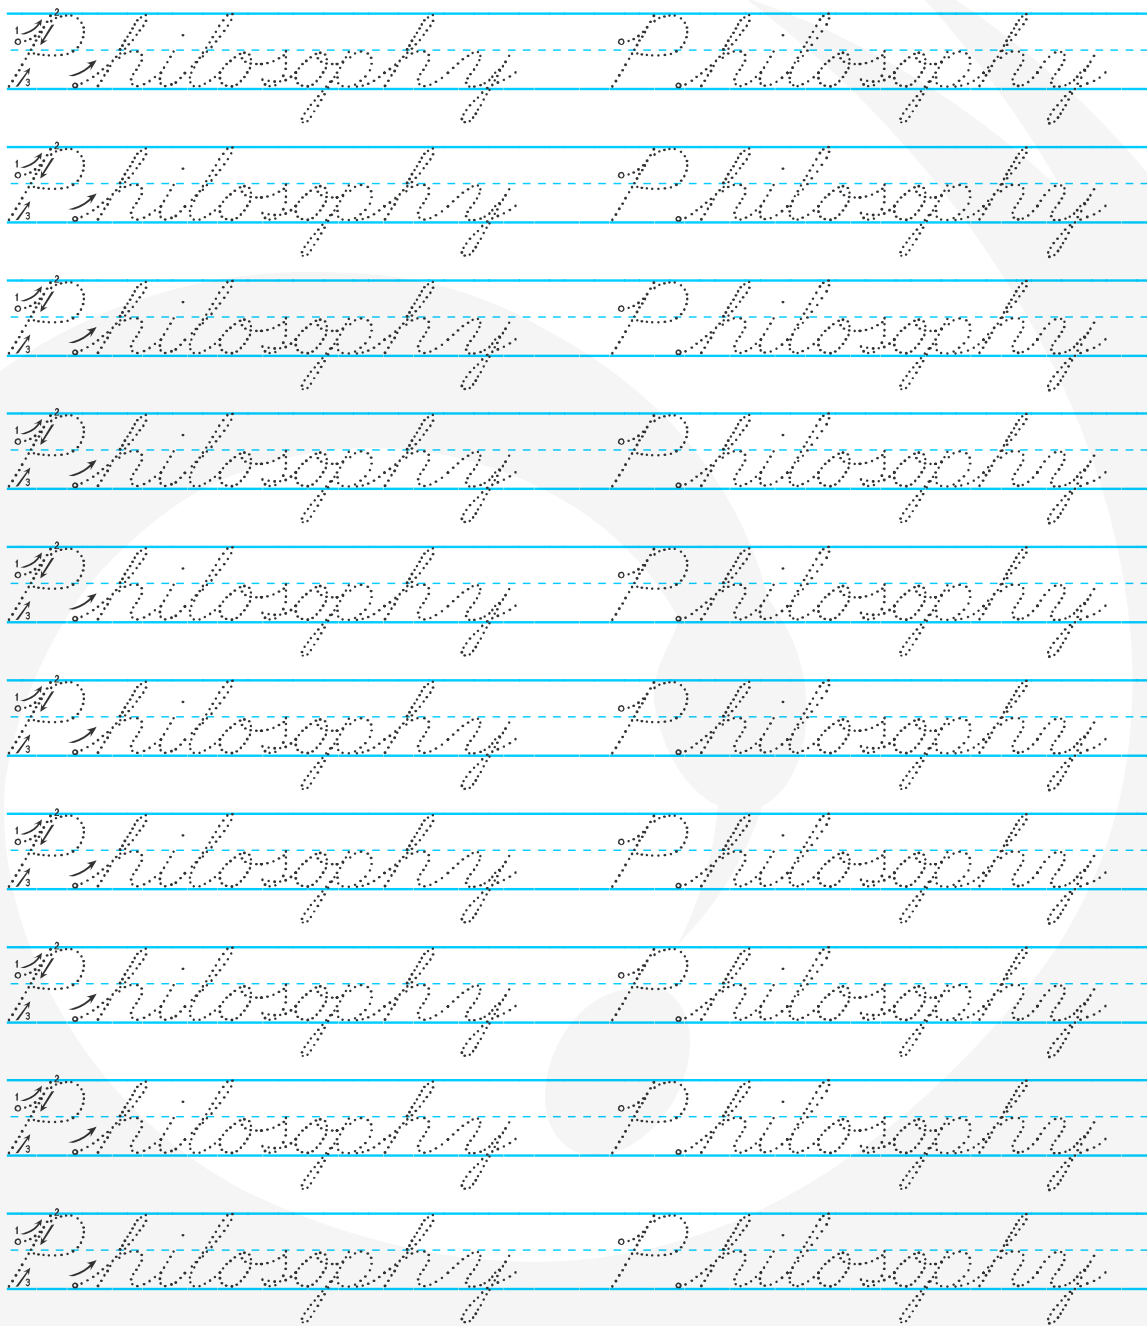 Philosophy Philosophy
Philosophy Philosophy
Philosophy Philosophy
Philosophy Philosophy
Philosophy Philosophy
Philosophy Philosophy
Philosophy Philosophy
Philosophy Philosophy
Philosophy Philosophy
Philosophy Philosophy